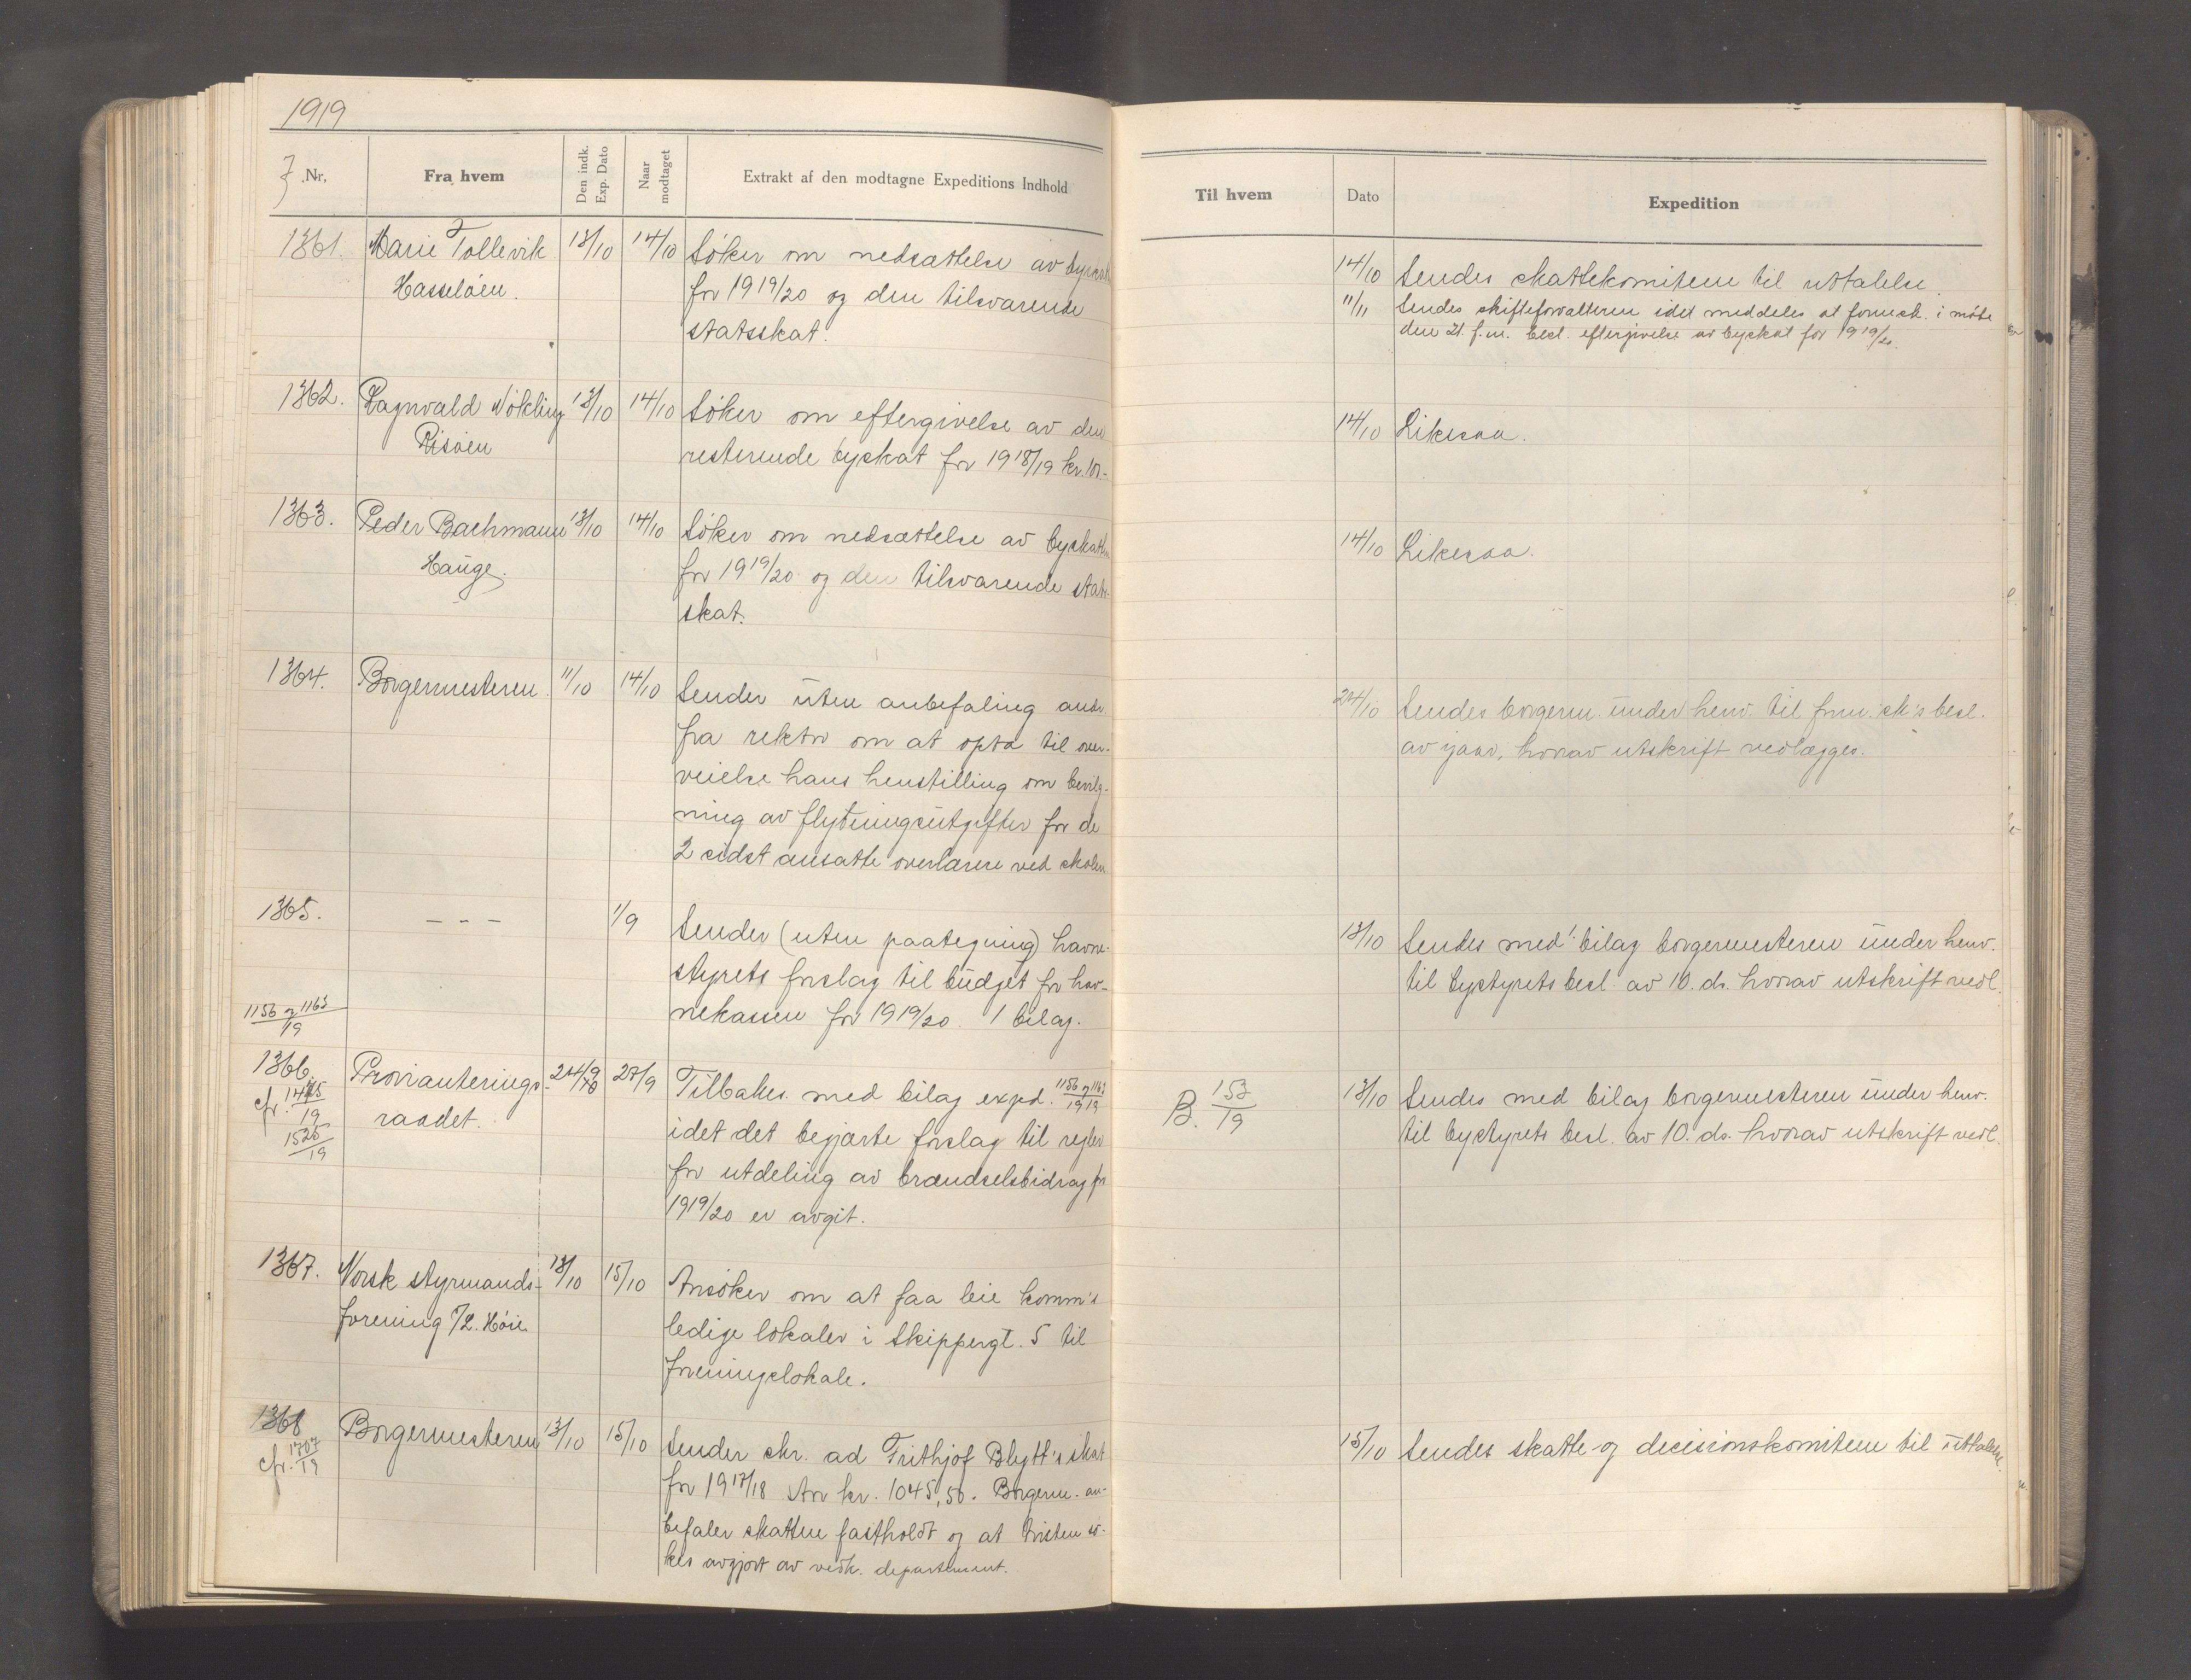 1919
J. Nr,
Fra hvem
Den indk. Exp. Dato
Naar modtaget
Extrakt af den modtagne Expeditions Indhold
Til hvem
Dato
Expedition
1361. Marie Tollevik 13/10 14/10 Søker om nedsættelse av byskat
Hasseløen. for 1919/20 og den tilsvarende
statsskat.
14/10 Sendes skattekomiteen til uttalelse.
11/11 Sendes skifteforvalteren idet meddeles at formsk. i møte
den 21. f.m. besl. eftergivelse av byskat for 1919/20.
1362. Ragnvald Nøkling 13/10 14/10 Søker om eftergivelse av den
Risøen resterende byskat for 1918/19 kr.
14/10 Likesaa.
1363. Peder Bachmann 13/10 14/10 Søker om nedsættelse av byskatten
Hauge. for 1919/20 og den tilsvarende stats-
skat.
14/10 Likesaa.
1364. Borgermesteren. 11/10 14/10 Sender uten anbefaling andr.
fra rektor om at opta til over-
veielse hans henstilling om bevilg-
ning av flytningsutgifter for de
2 sidst ansatte overlærere ved skolen
24/10 Sendes borgerm. under henv. til form.sk's besl.
av igaar, hvorav utskrift vedlægges.
1365. – – – 1/9 Sender (uten paategning) havne-
styrets forslag til budget for hav-
nekassen for 1919/20. 1 bilag.
13/10 Sendes med 1 bilag borgermesteren under henv.
til bystyrets besl. av 10. ds. hvorav utskrift vedl.
1156 og 1163/19
1366. Provianterings- 24/9 27/9 Tilbakes. med bilag exped. 1156 og 1163/1919
cfr. 1475/19 raadet. idet det begjærte forslag til regler
1525/19 for utdeling av brændselsbidrag for
1919/20 er avgit.
B. 153/19 13/10 Sendes med bilag borgermesteren under henv.
til bystyrets besl. av 10. ds. hvorav utskrift vedl.
1367. Norsk styrmands- 13/10 15/10 Ansøker om at faa leie komm's
forening v/L. Høie. ledige lokaler i Skippergt. 5 til
foreningslokale.
1368 Borgermesteren 13/10 15/10 Sender skr. ad Frithjof Blytt's skat
cfr. 1707/19 for 1917/18 stor kr. 1045,50. Borgerm. an-
befaler skatten fastholdt og at tvisten sø-
kes avgjort av vedk. departement.
15/10 Sendes skatte- og decisionskomiteen til uttalelse.